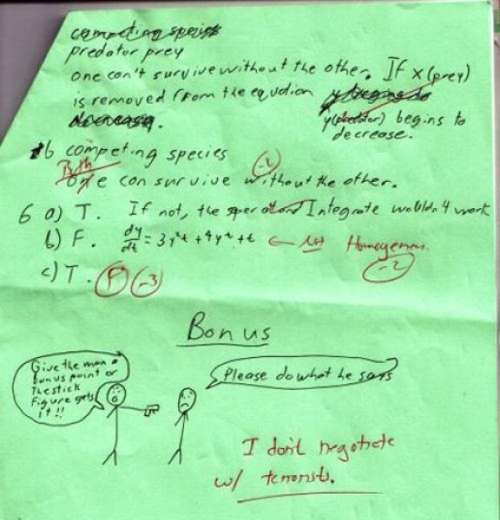 competing species
predator prey
one can't survive without the other. If x (prey)
is removed from the equation y begins to
decreasing. y (predator) begins to
decrease.
b competing species
Both
One can survive without the other. -2
6 a) T. If not, the and Integrate wouldn't work
b) F. dy/dt = 3y²t + 4y² + t ← not Homogeneous.
-2
c) T. F -3
Bonus
Give the man a
bonus point or
the stick
figure gets
it!!
Please do what he says
I don't negotiate
w/ terrorists.